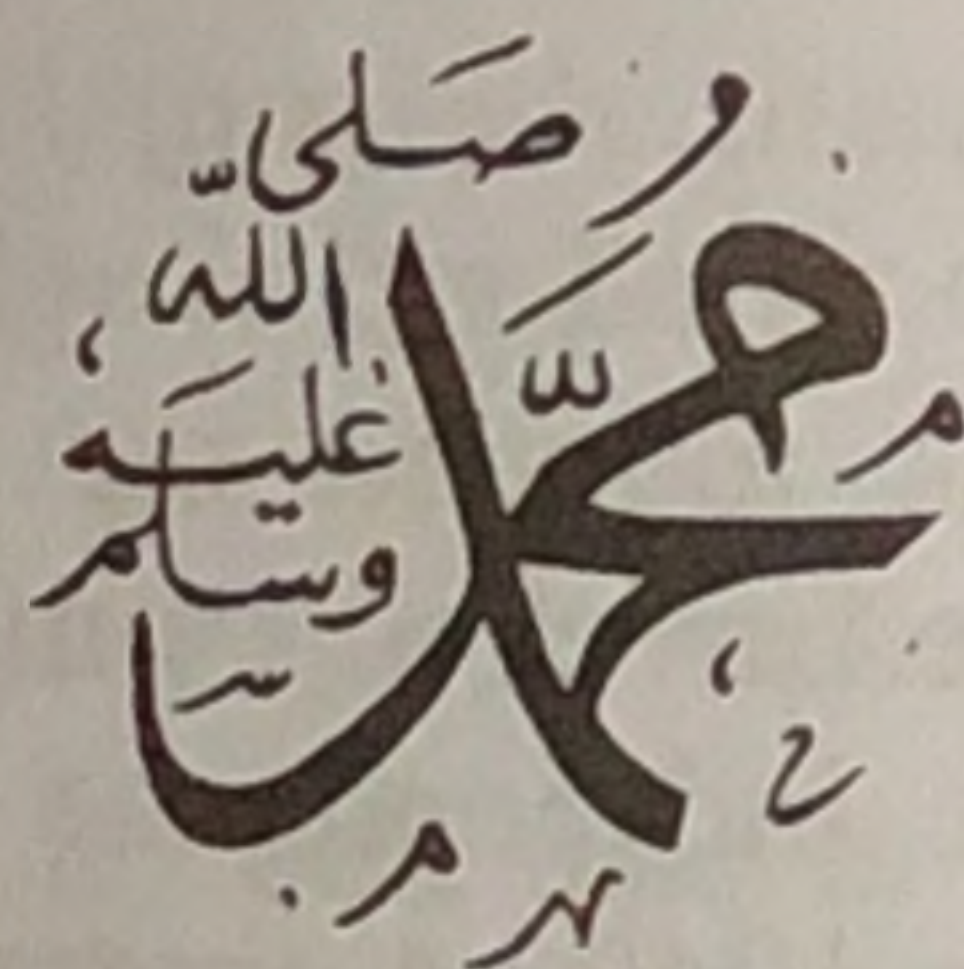 مُحَمَّد
صَلَّى
اللّٰه
عليه
وسَلم